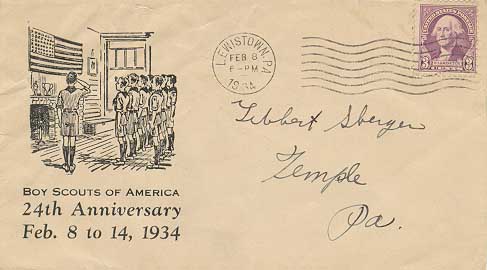 LEWISTOWN, PA.
FEB 8
6-PM
1934
3 3
BOY SCOUTS OF AMERICA
24th Anniversary
Feb. 8 to 14, 1934
Sberger
Temple
Pa.